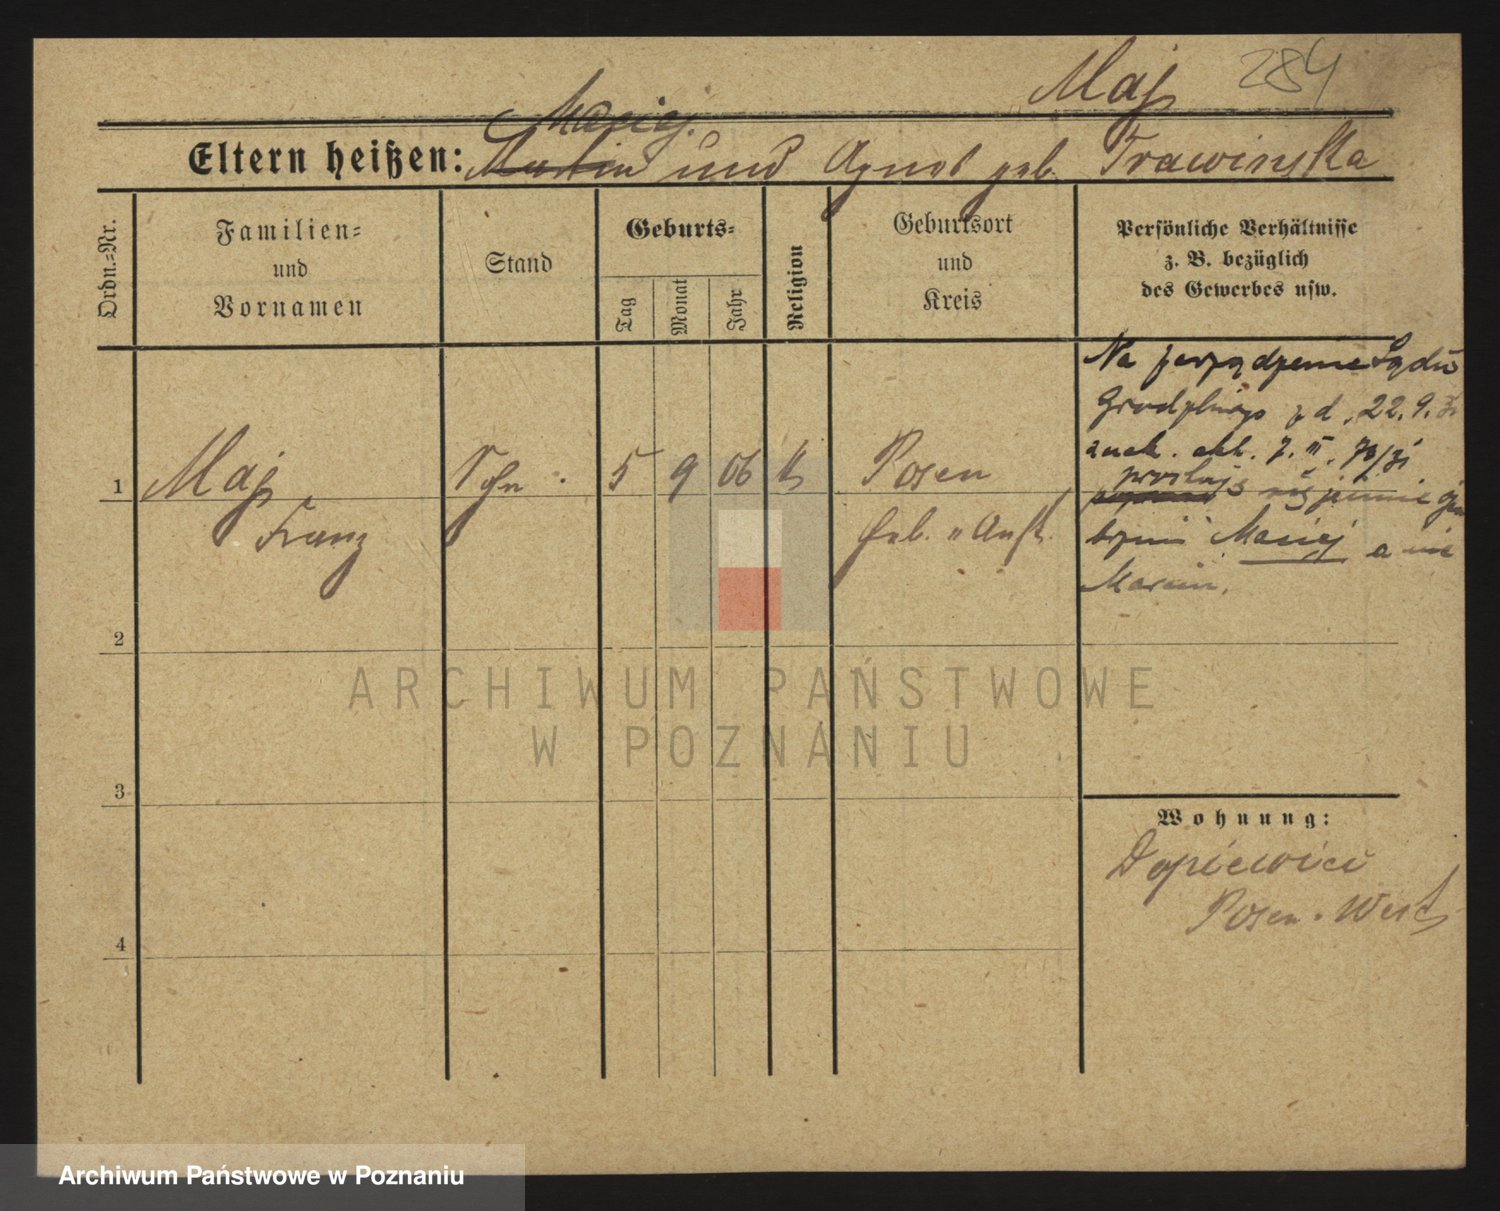 Maj 284
Maciej
Eltern heißen: Martin und Agnes geb. Trawinska
Ordn.=Nr.
Familien=
und
Vornamen
Stand
Geburts=
Tag
Monat
Jahr
Religion
Geburtsort
und
Kreis
Persönliche Verhältnisse
z. B. bezüglich
des Gewerbes usw.
1
Maj
Franz
Sohn
5 9 06 k
Posen
Geb. Anst.
Na zarządzenie Sądu
Grodzkiego z d. 22.9.
znak. akt. 7. II. 70/31
prostuje się imię
Maciej a nie
Marcin.
2
3
4
Wohnung:
Dopiewiec
Posen-West
ARCHIWUM PAŃSTWOWE
W POZNANIU
Archiwum Państwowe w Poznaniu